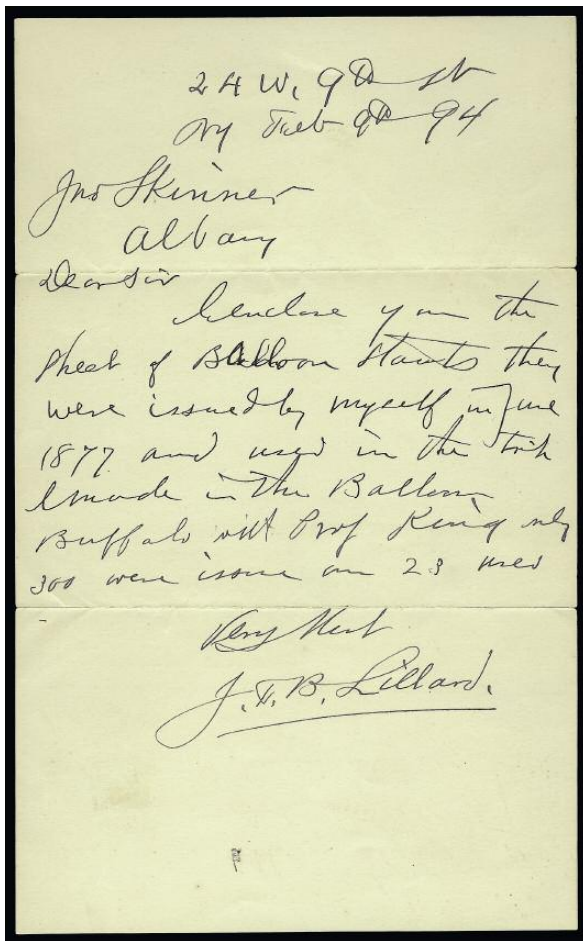 24 W. 9th St
NY Feb 9th 94
Jno Skinner
Albany
Dear Sir
I enclose you the
sheet of Balloon Stamps they
were issued by myself in June
1877 and used in the trip
I made in the Balloon
Buffalo with Prof King only
300 were issue and 23 used
Very
J. F. B. Lillard.